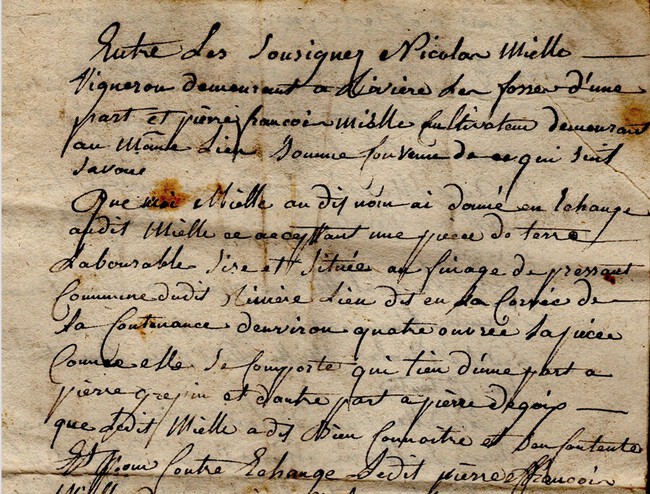 Entre Les Sousignez Nicolas Mielle
Vigneron demeurant a Rivière Les fosses d'une
part et pierre francois Mielle Cultivateur demeurant
au Même Lieu Somme Convenu de ce qui suit
Savoir
Que moi Mielle au dis nom ai doné en Echange
audit Mielle ce acceptant une piece de terre
Labourable Size et Située au finage de pressant
Commune dudis Rivière Lieu dis en La Corvée de
La Contenance denviron quatre ouvrée La piece
Comme elle Se Comporte qui tien d'une part a
pierre grepin et dautre part a pierre degois
que Ledit Mielle a dis Bien Connoitre et Son Contente
Et pour Contre Echange Ledit pierre francois